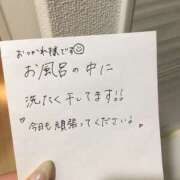 おつかれ様です☺
お風呂の中に
洗たく干してます!!
今日も頑張ってください。